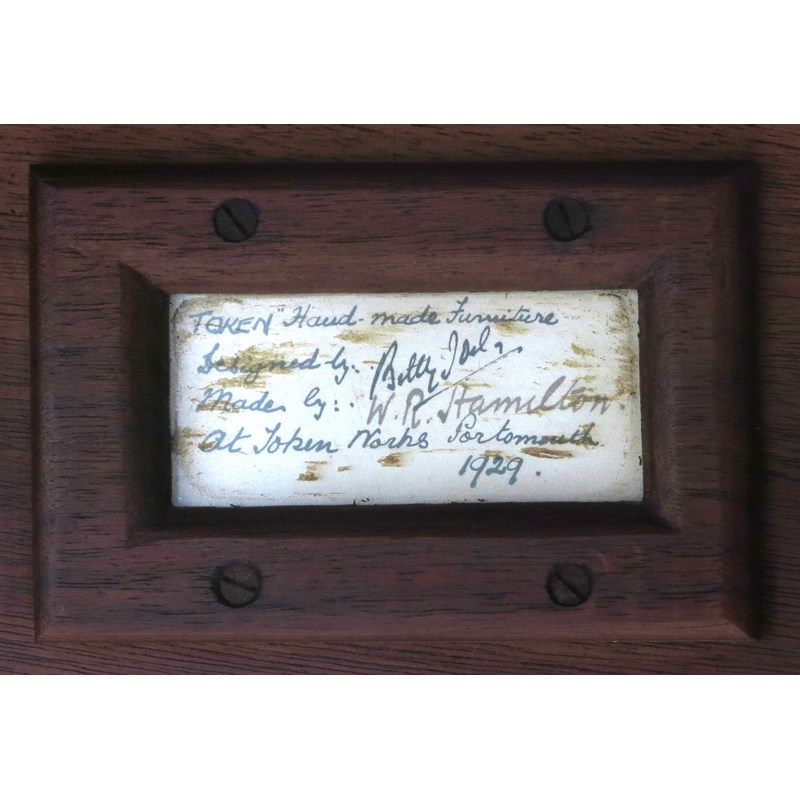 TOKEN" Hand-made Furniture
Designed by:. Betty Joel.
Made by:. W. R. Hamilton.
At Token Works Portsmouth
1929.